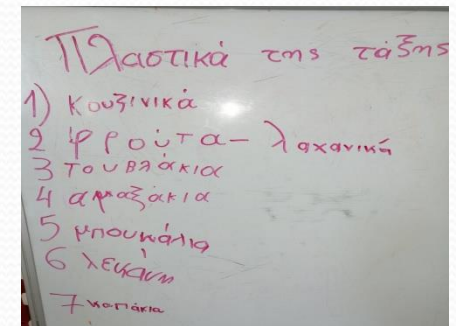 Πλαστικά της τάξης
1) κουζινικά
2 φρούτα- λαχανικά
3 τουβλάκια
4 αμαξάκια
5 μπουκάλια
6 λεκάνη
7 καπάκια